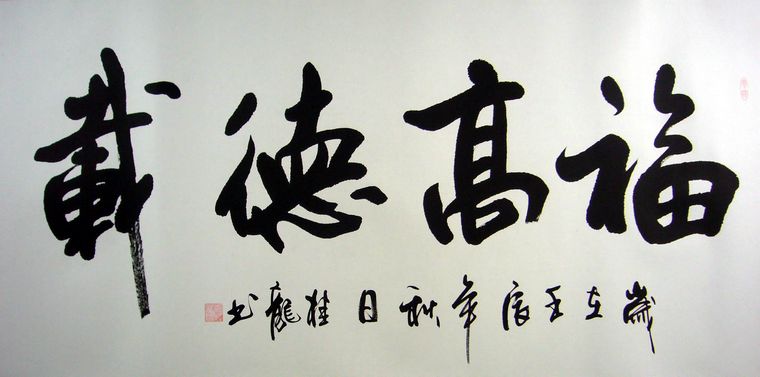 福高德載
歲在壬辰年秋日桂龍书